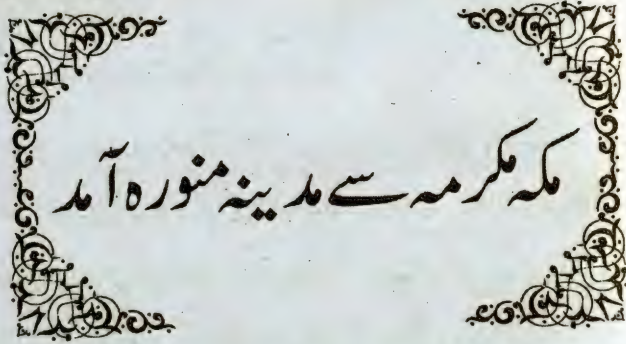 مکہ مکرمہ سے مدینہ منورہ آمد